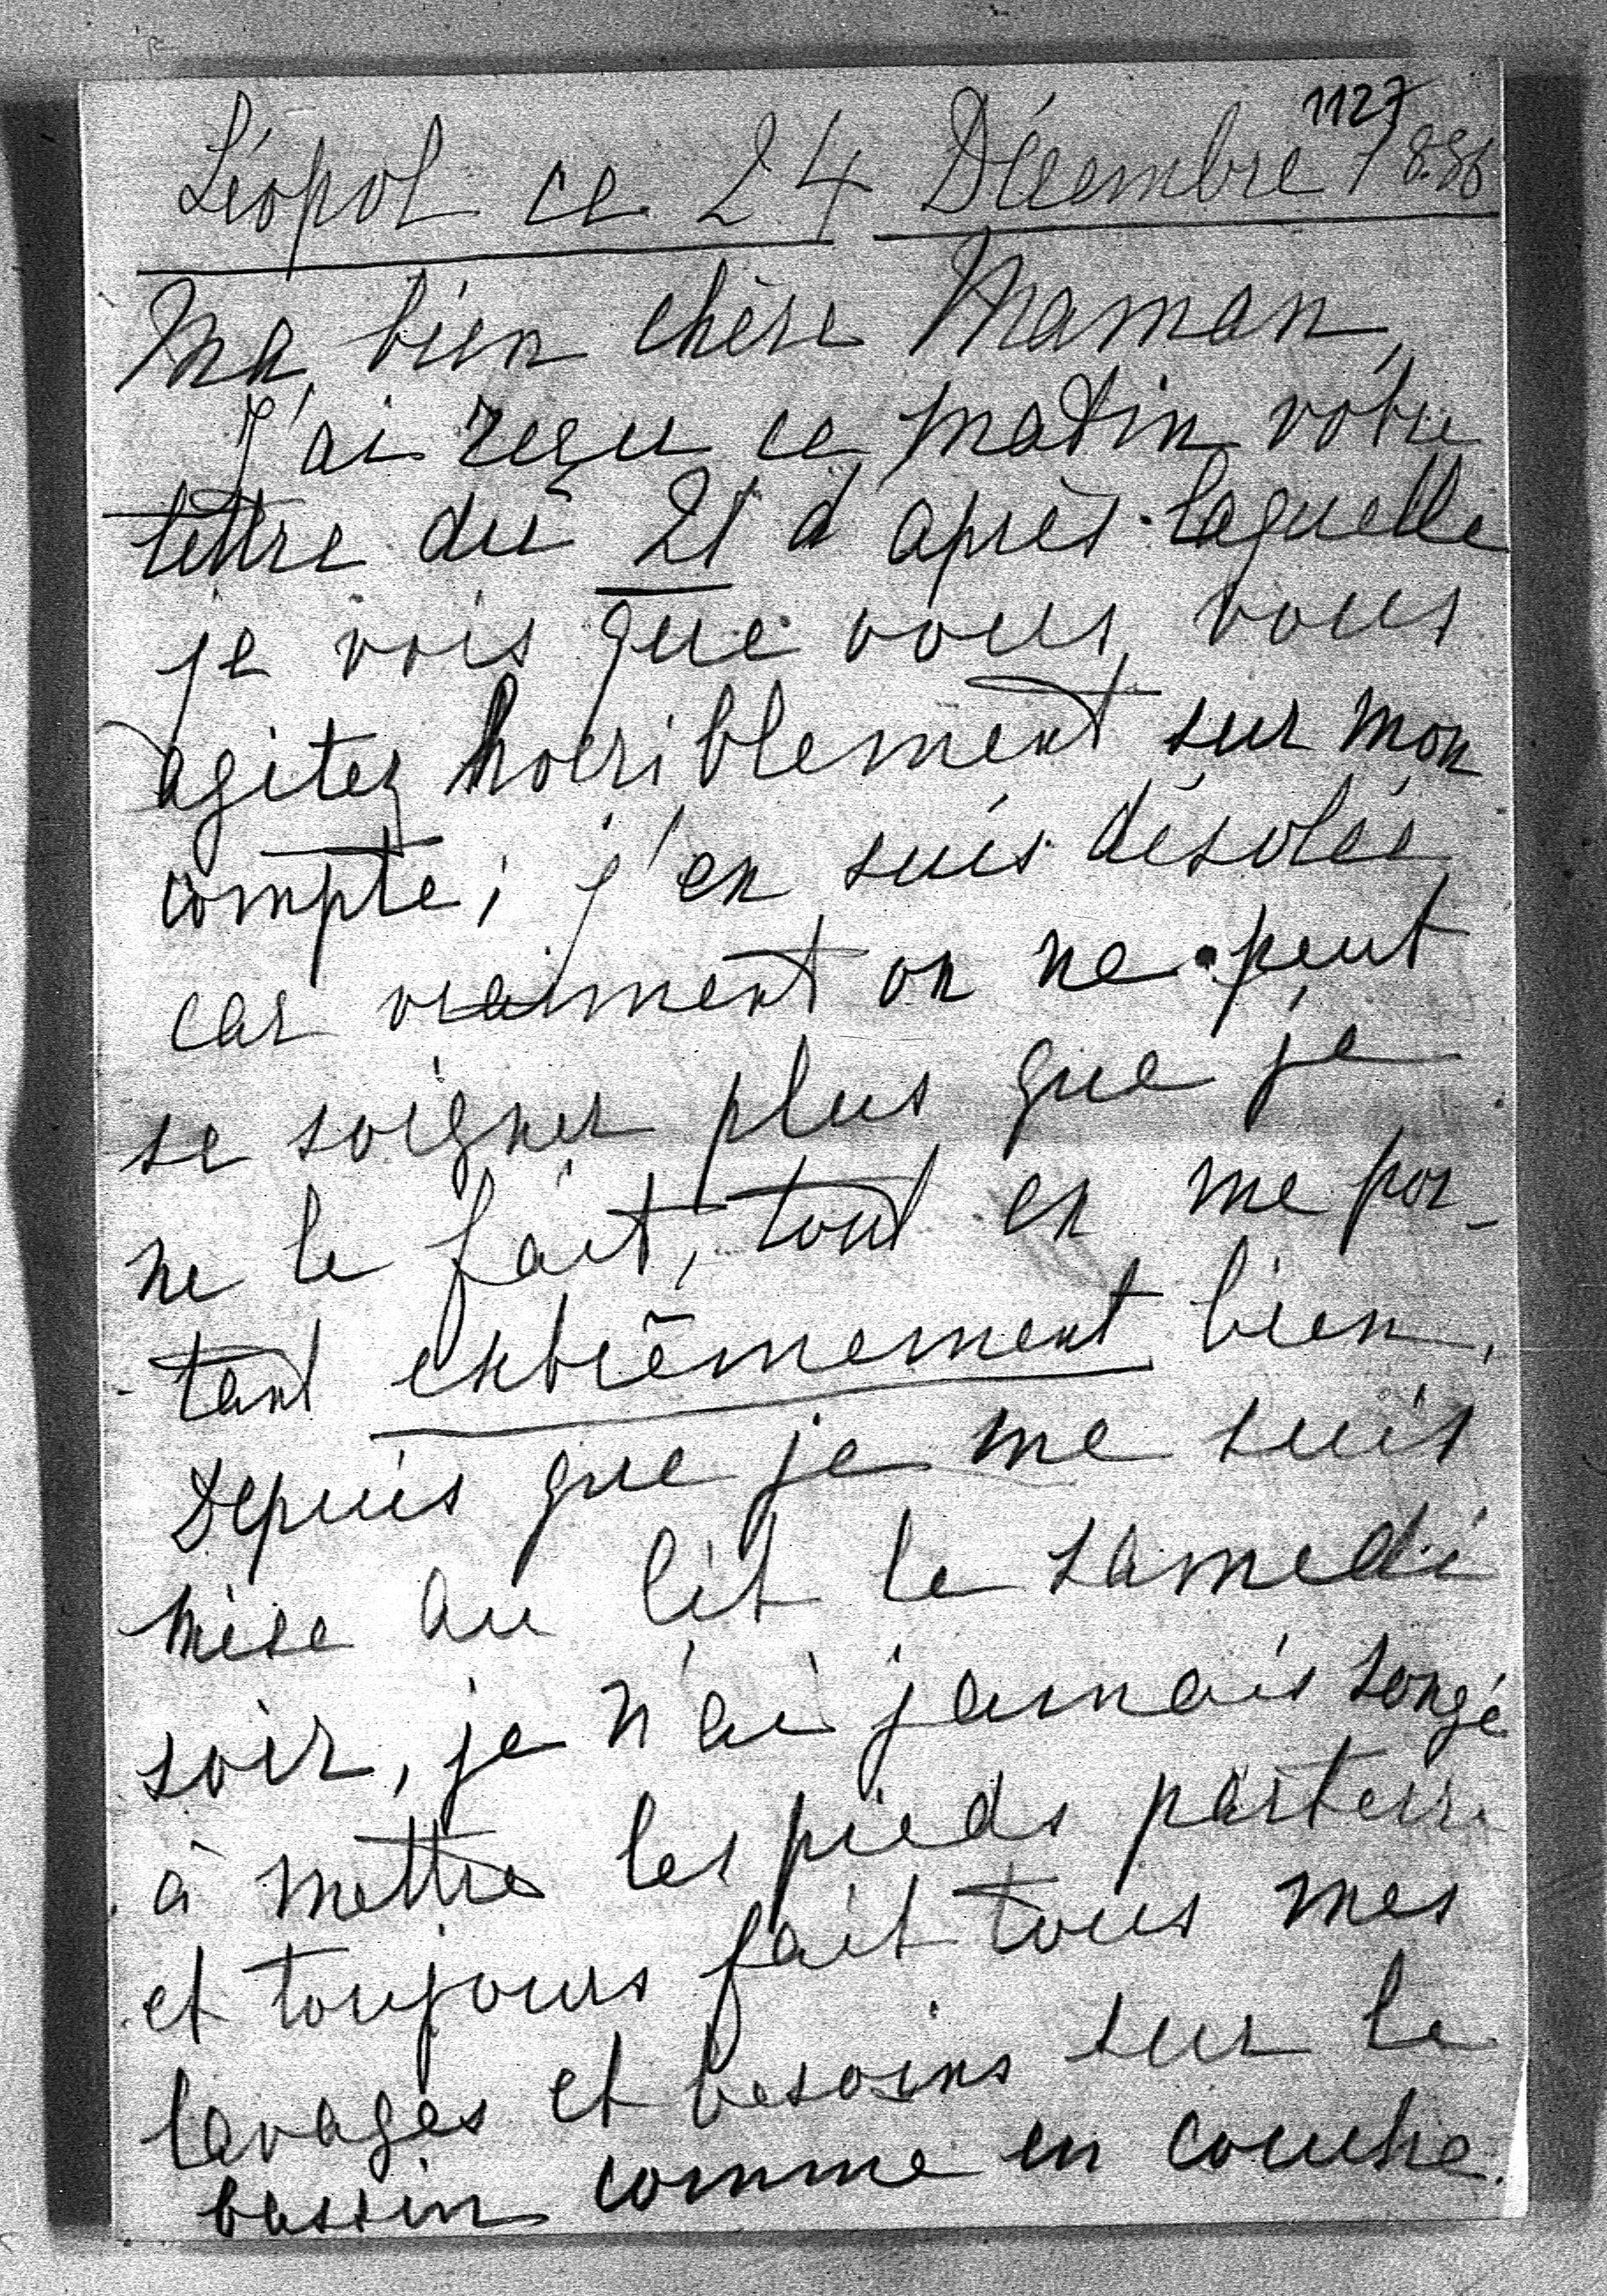 1127
Léopol ce 24 Décembre 1886
Ma bien chère Maman,
J'ai reçu ce matin vôtre
lettre du 21 d'après laquelle
je vois que vous, vous
agitez horriblement sur mon
compte; j'en suis désolée,
car vraiment on ne peut
se soigner plus que je
ne le fait, tout en me por-
tant extrêmement bien.
Depuis que je me suis
mise au lit le samedi
soir, je n'ai jamais songé
à mettre les pieds parterre
et toujours fait tous mes
lavages et besoins sur le
bassin comme en couche.